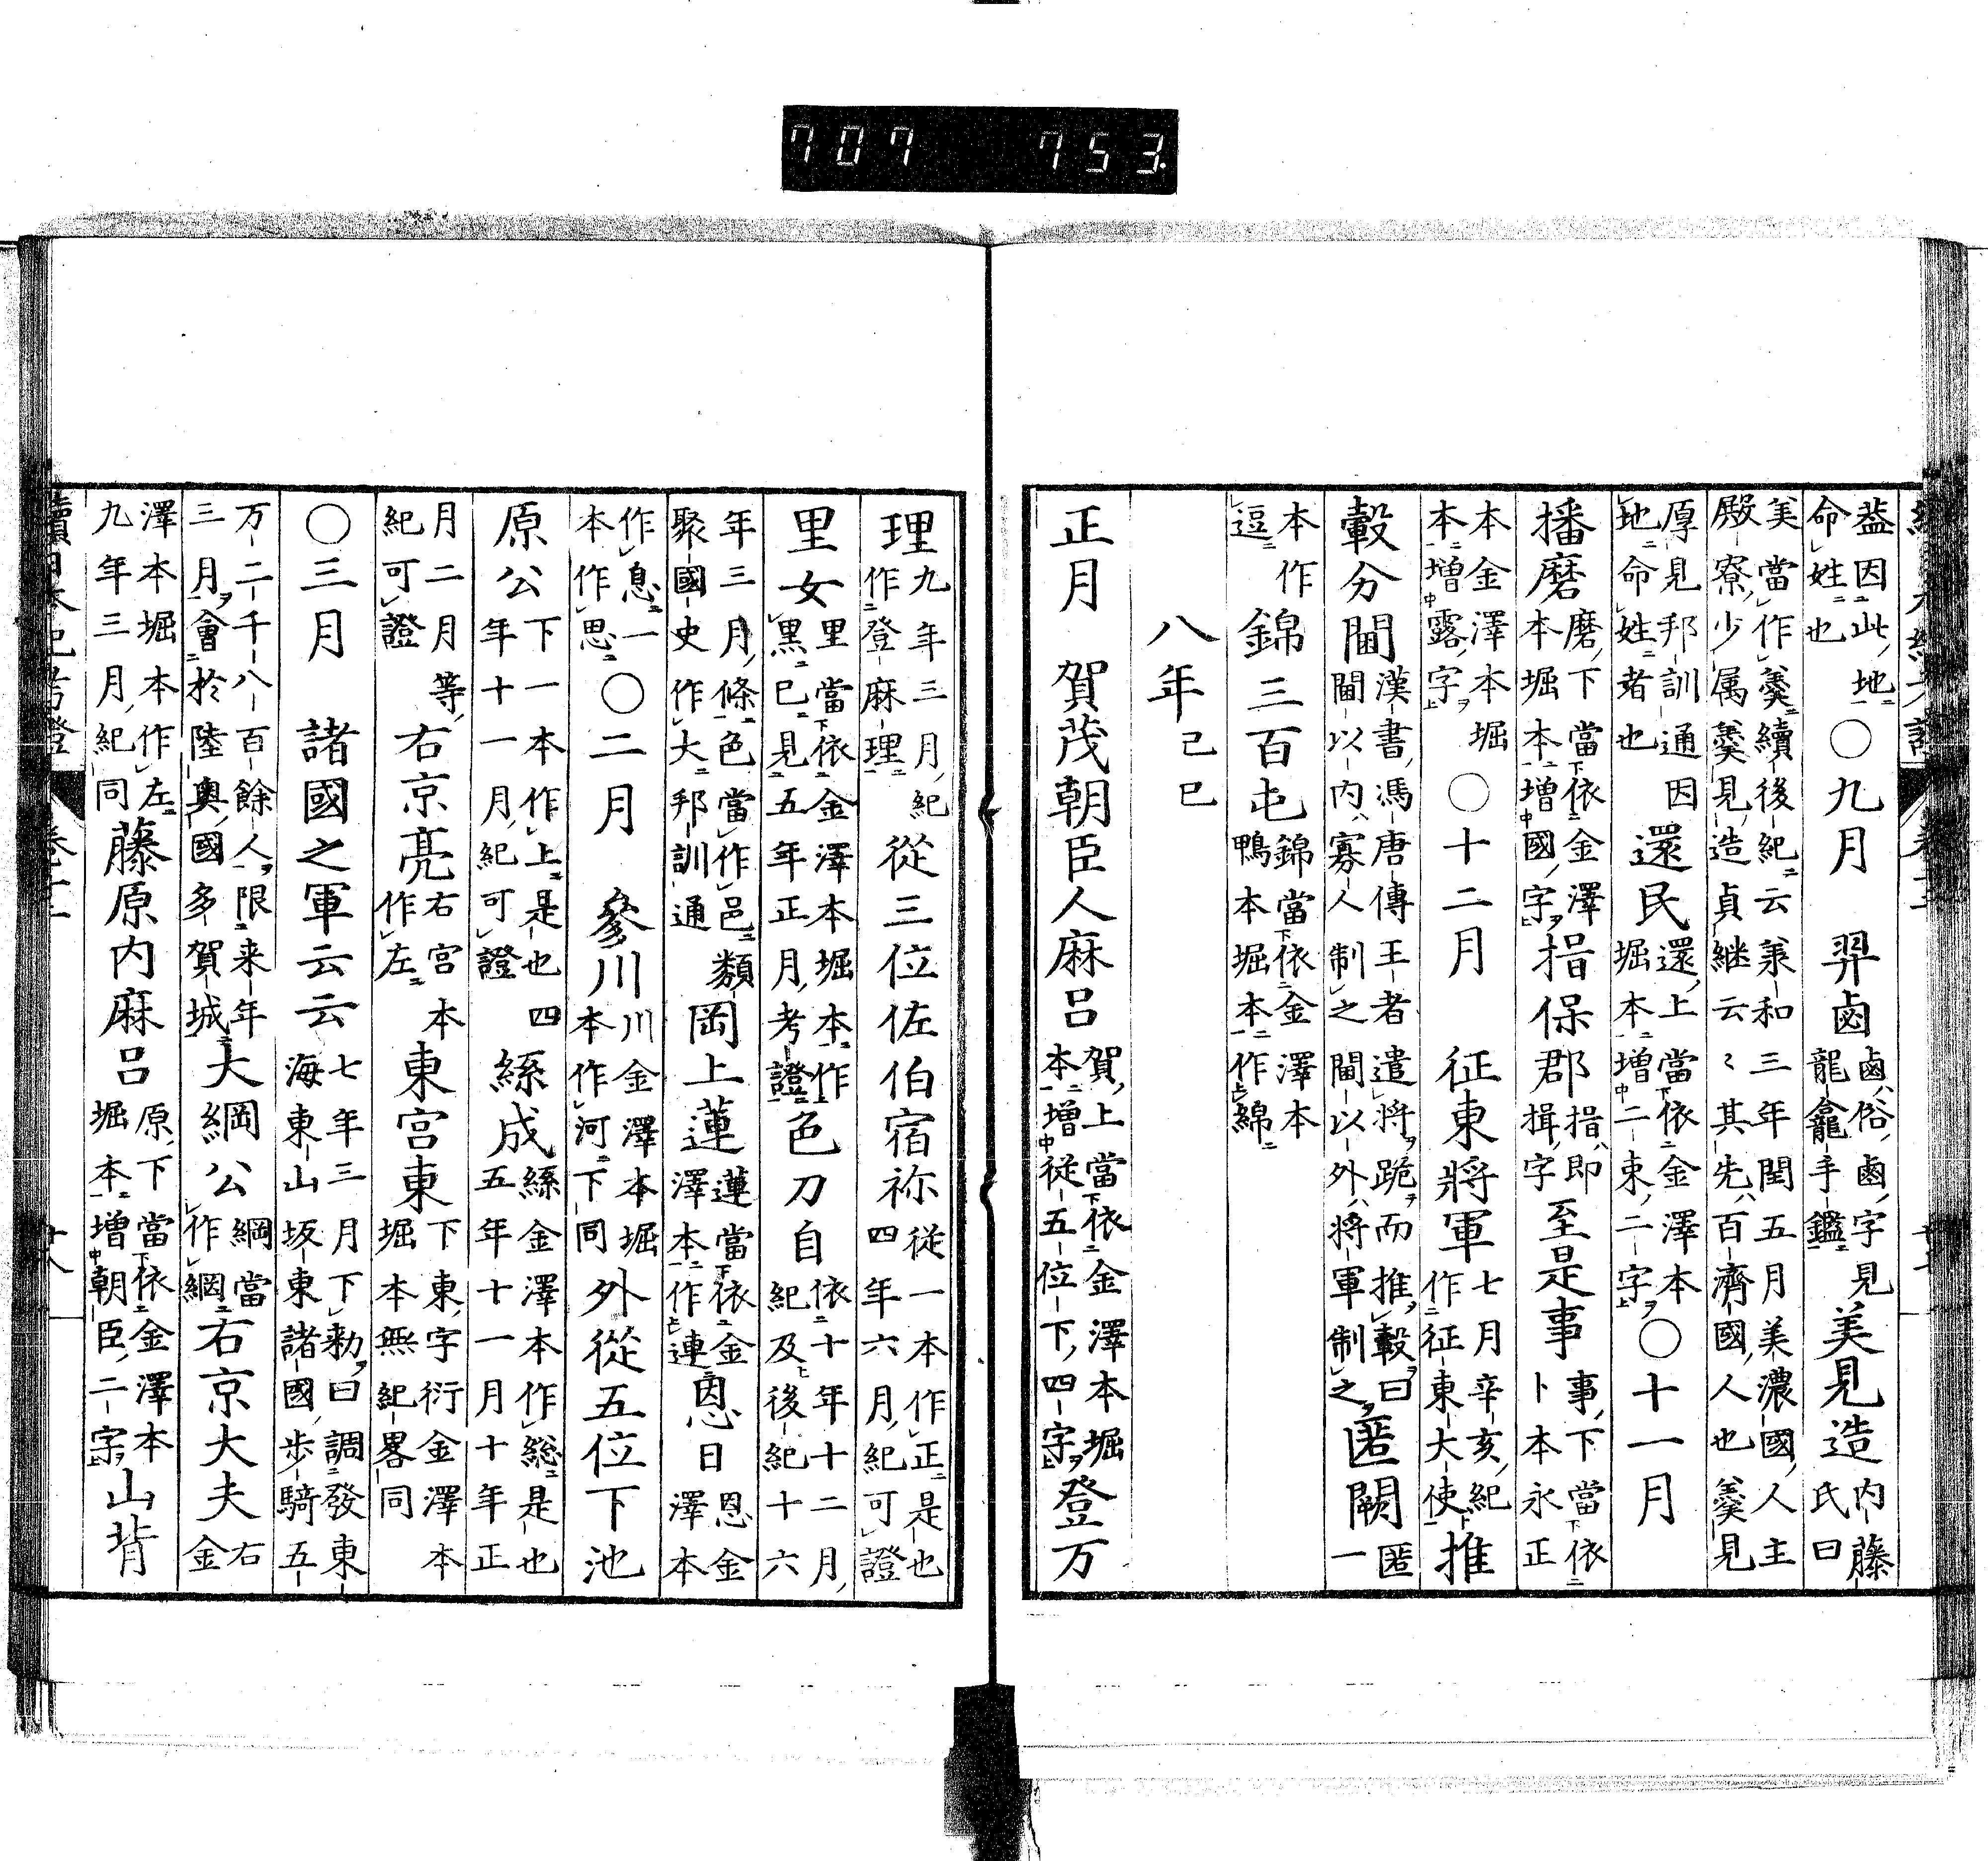 707 753.
葢因此地
命姓也
〇九月 羿鹵
鹵俗鹵字見
龍龕手鑑
美見造
内藤
氏曰
美當作羹續後紀云羕和三年閏五月美濃國人主
殿寮少属羹見造貞継云〻其先百濟國人也羹見
厚見邦訓通因
地命姓者也
還民
還上當依金澤本
堀本增二束二字
〇十一月
播磨
磨下當依金澤
本堀本增國字
揩保郡
揩即
揖字
至是事
事下當依
卜本永正
本金澤本堀
本增露字
〇十二月 征東將軍
七月辛亥紀
作征東大使
推
轂分閫
漢書馮唐傳王者遣將跪而推轂曰
閫以内寡人制之閫以外將軍制之
匿闕
匿
一
本作
逗
錦三百屯
錦當依金澤本
鴨本堀本作綿
八年己巳
正月 賀茂朝臣人麻呂
賀上當依金澤本堀
本增從五位下四字
登万
理
九年三月紀
作登麻理
從三位佐伯宿祢
從一本作正是也
四年六月紀可證
里女
里當依金澤本堀本作
黒已見五年正月考證
色刀自
依十年十二月
紀及後紀十六
年三月條色當作邑類
聚國史作大邦訓通
岡上蓮
蓮當依金
澤本作連
恩
恩金
日澤本
作息一
本作思
〇二月 參川
川金澤本堀
本作河下同
外從五位下池
原公
下一本作上是也四
年十一月紀可證
絲成
絲金澤本作総是也
五年十一月十年正
月二月等
紀可證
右京亮
右宮本
作左
東宮東
下東字衍金澤本
堀本無紀畧同
〇三月 諸國之軍云云
七年三月下勅曰調發東
海東山坂東諸國步騎五
万二千八百餘人限来年
三月會於陸奥國多賀城
大綱公
綱當
作網
右京大夫
右
金
澤本堀本作左
九年三月紀同
藤原内麻呂
原下當依金澤本
堀本增朝臣二字
山背